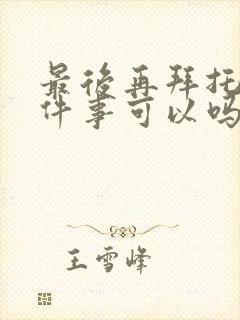 最後再拜托
件事可以吗
王雪峰